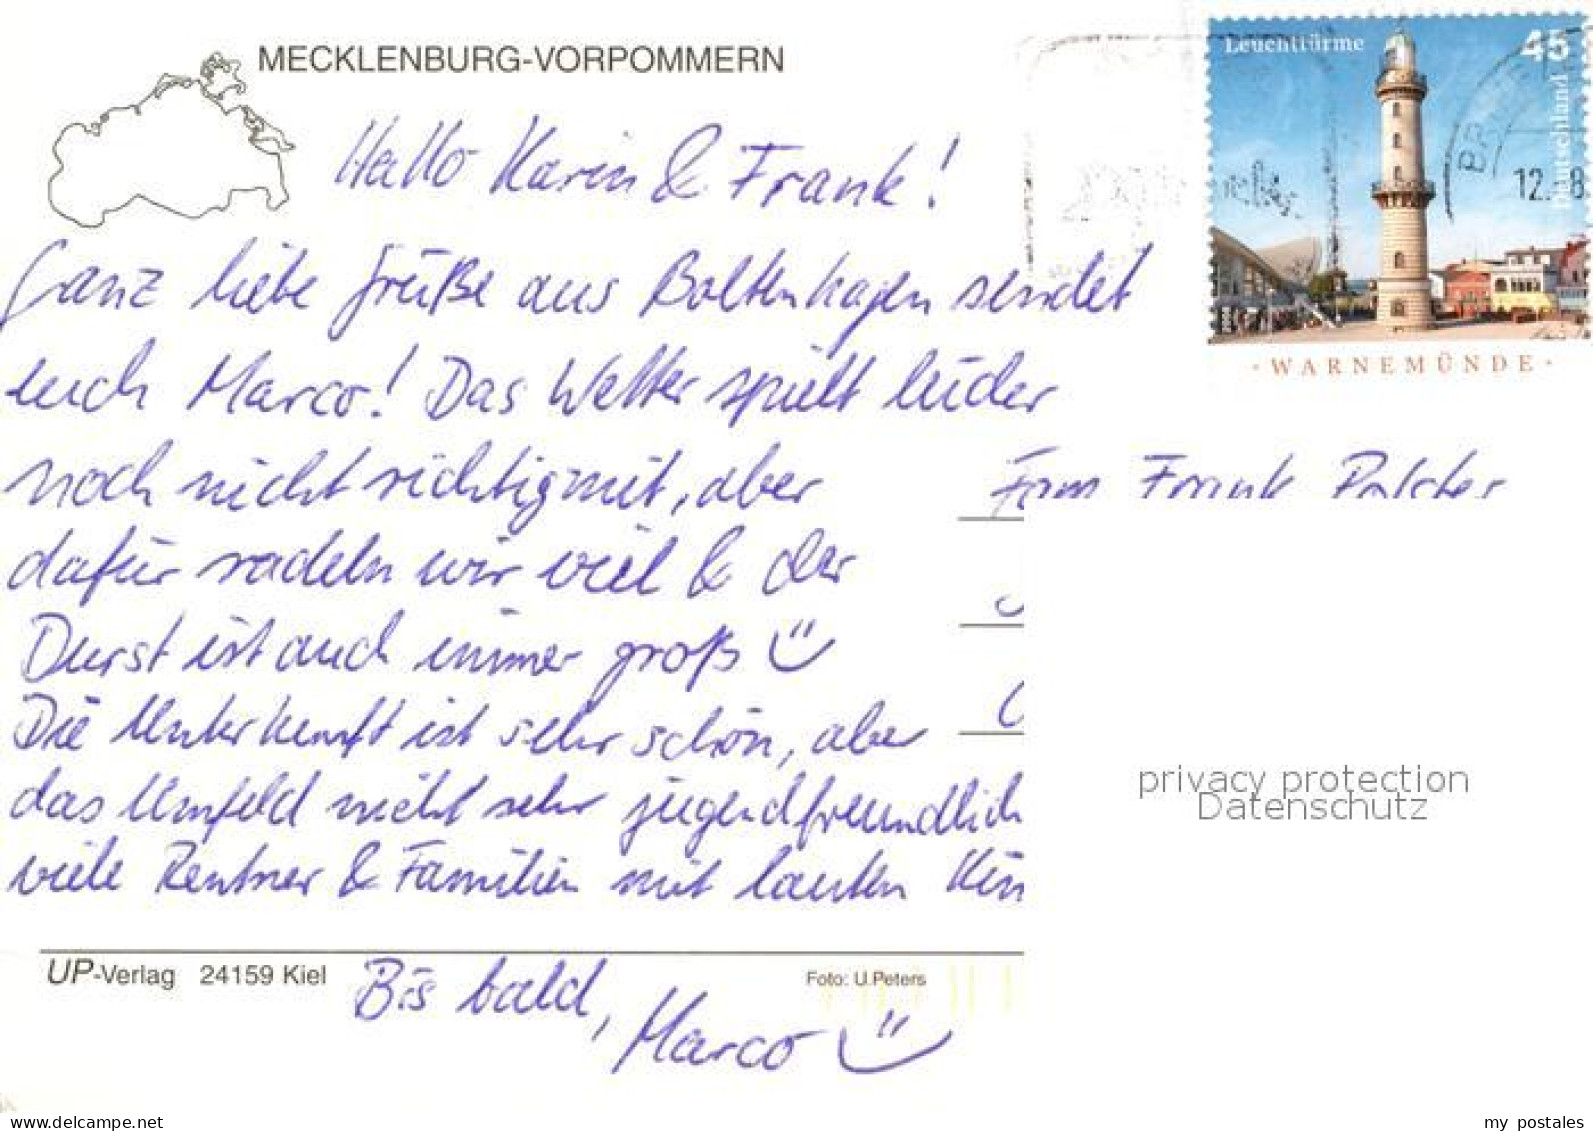 MECKLENBURG-VORPOMMERN
Leuchttürme
45
Deutschland
12. 8
· WARNEMÜNDE ·
Hallo Karin & Frank!
Ganz liebe Grüße aus Boltenhagen sendet
euch Marco! Das Wetter spielt leider
noch nicht richtig mit, aber
dafür radeln wir viel & der
Durst ist auch immer groß
Die Unterkunft ist sehr schön, aber
das Umfeld nicht sehr jugendfreundlich
viele Rentner & Familien mit lauten Kin
Bis bald,
Marco
Fam Frank
privacy protection
Datenschutz
UP-Verlag 24159 Kiel
Foto: U.Peters
www.delcampe.net
my_postales